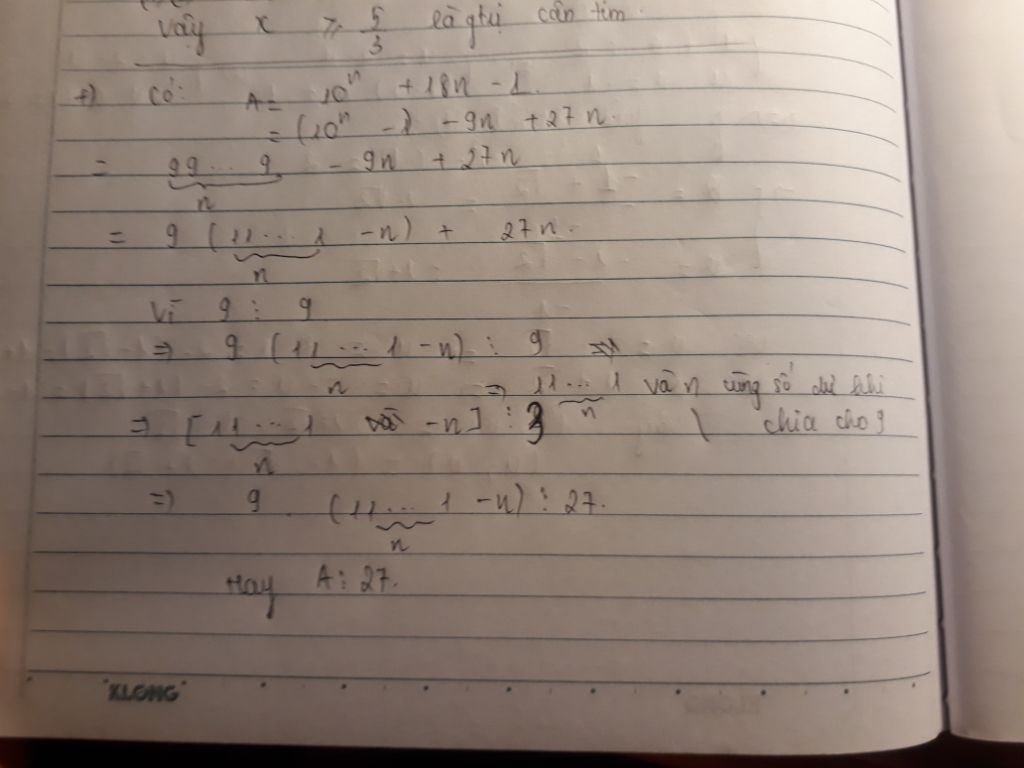 Vậy x ≥ 5/3 là gtrị cần tìm.
+) Có: A = 10^n + 18n - 1.
= (10^n - 1) - 9n + 27n.
= 99...9 - 9n + 27n
n
= 9 (11...1 - n) + 27n.
n
Vì 9 ⋮ 9
=> 9 (11...1 - n) ⋮ 9
n
=> 11...1 và n cùng số dư khi
n
chia cho 9
=> [11...1 - n] ⋮ 3
n
=> 9 . (11...1 - n) ⋮ 27.
n
Hay A ⋮ 27.
KLONG